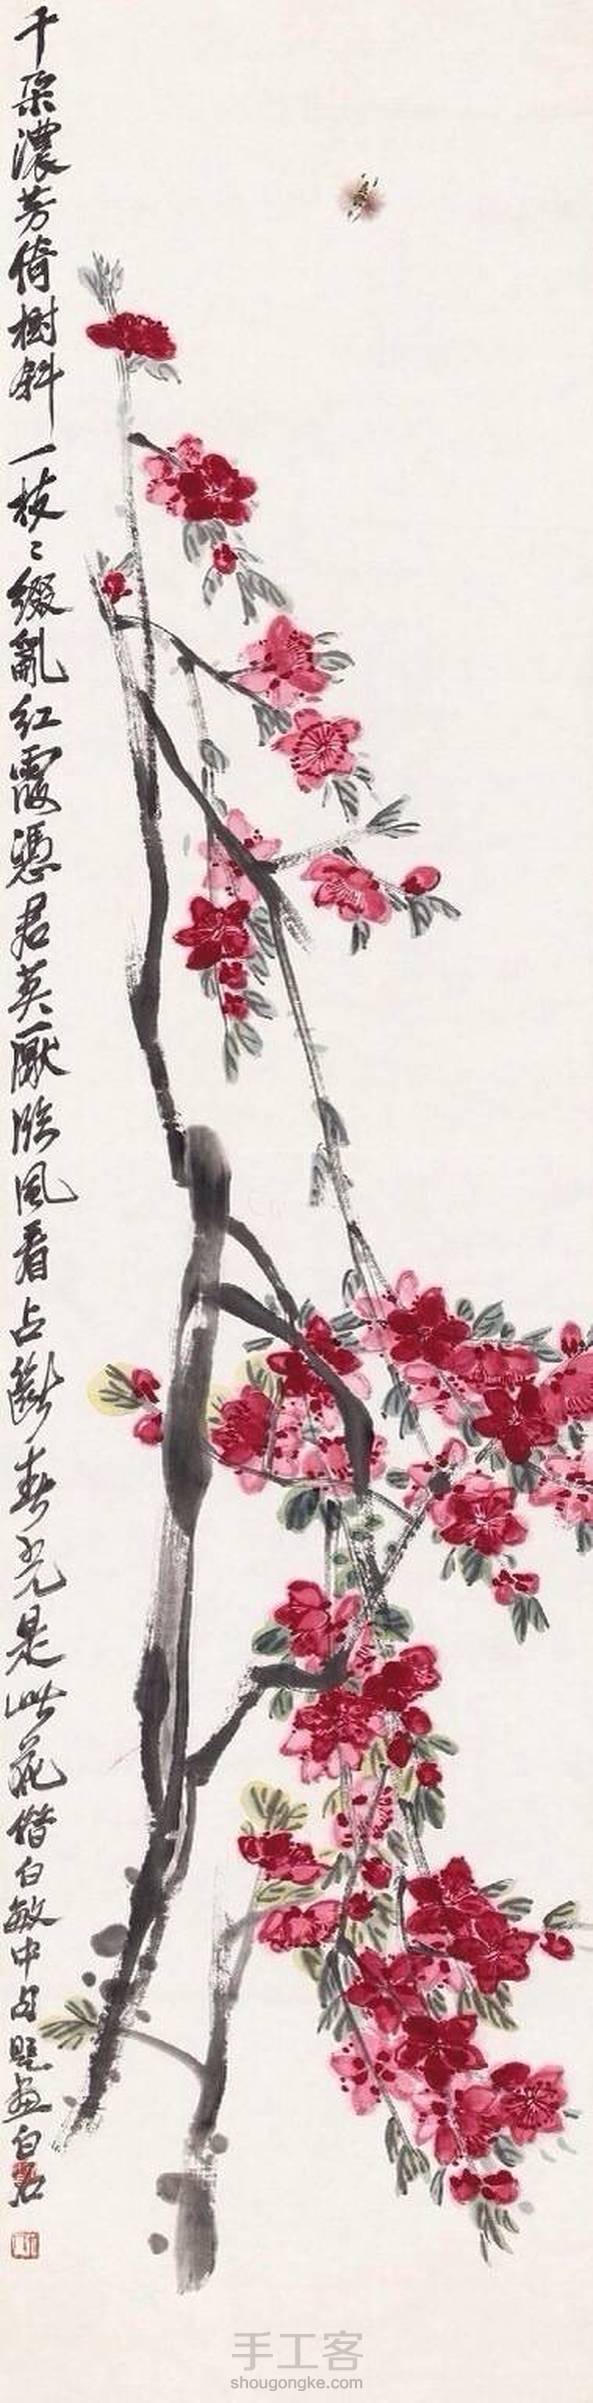 千朵濃芳倚樹斜一枝〻綴亂紅霞憑君莫厭臨風看占斷春光是此花借白敏中句題畫白石
手工客
shougongke.com